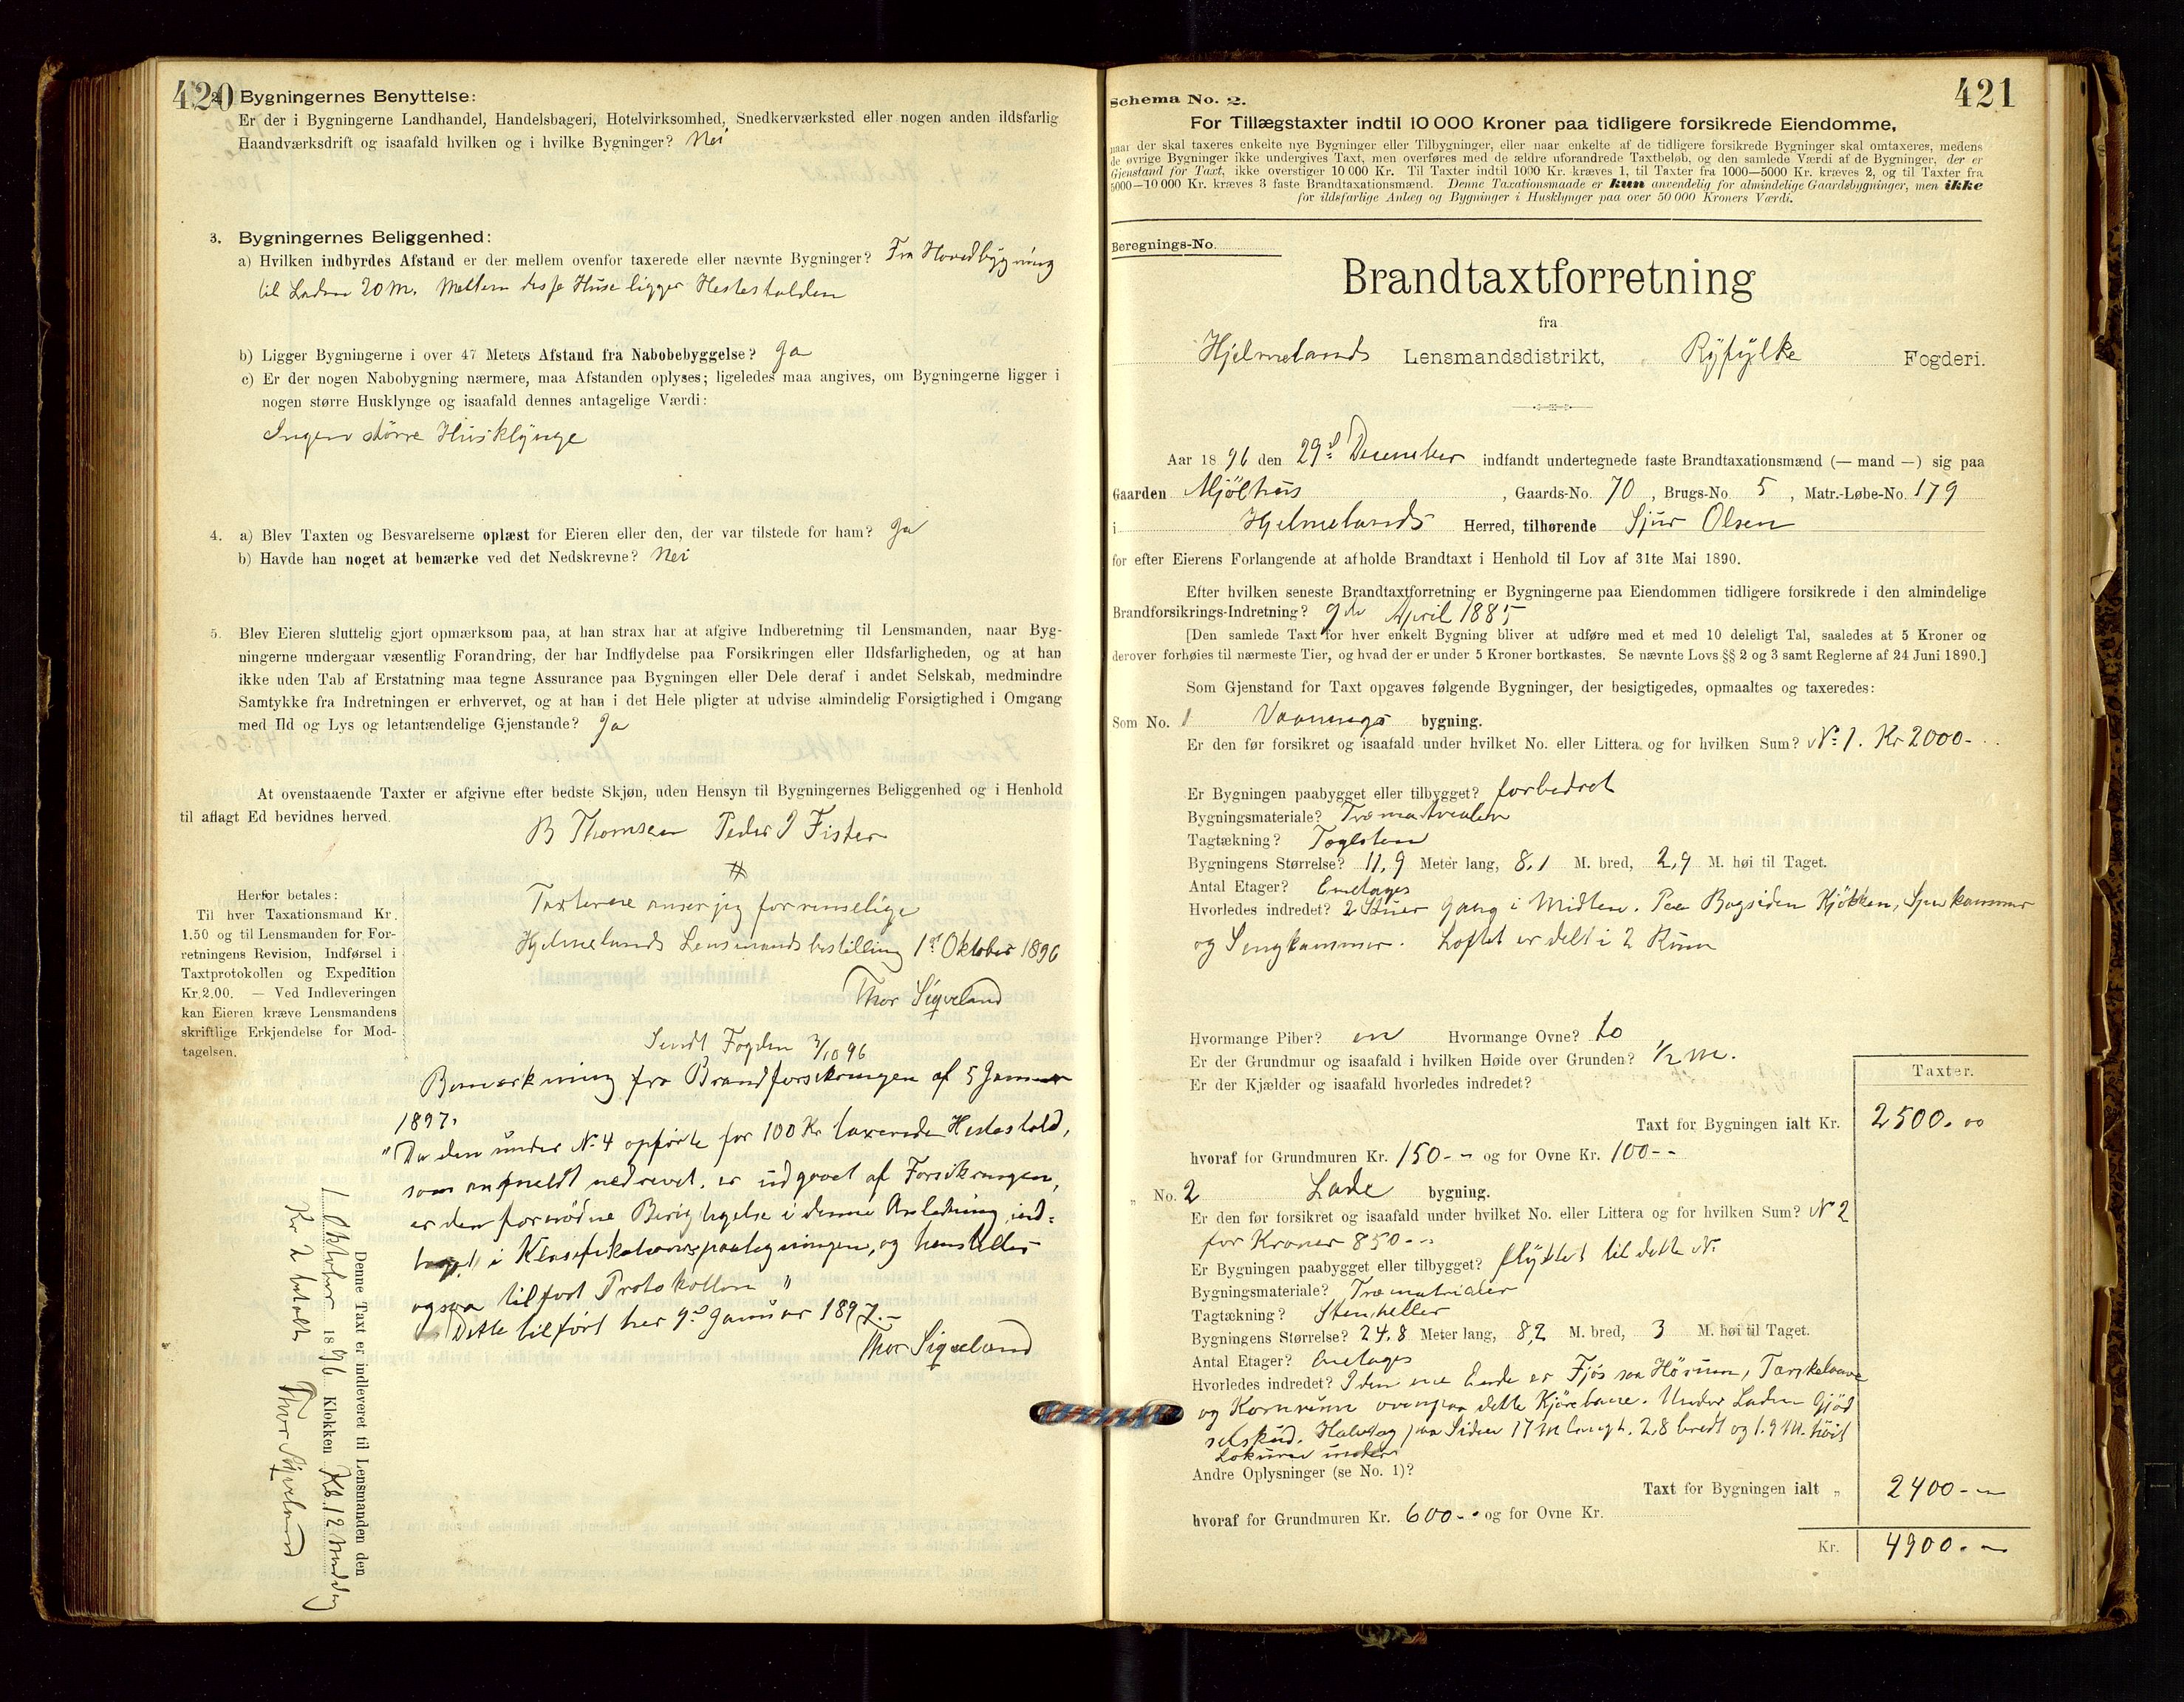 420
2. Bygningernes Benyttelse:
Er der i Bygningerne Landhandel, Handelsbageri, Hotelvirksomhed, Snedkerværksted eller nogen anden ildsfarlig
Haandværksdrift og isaafald hvilken og i hvilke Bygninger? Nei
3. Bygningernes Beliggenhed:
a) Hvilken indbyrdes Afstand er der mellem ovenfor taxerede eller nævnte Bygninger? Fra Hovedbygning
til Laden 20 m. Mellem disse Huse ligger Hestestalden
b) Ligger Bygningerne i over 47 Meters Afstand fra Nabobebyggelse? Ja
c) Er der nogen Nabobygning nærmere, maa Afstanden oplyses; ligeledes maa angives, om Bygningerne ligger i
nogen større Husklynge og isaafald dennes antagelige Værdi:
Ingen større Husklynge
4. a) Blev Taxten og Besvarelserne oplæst for Eieren eller den, der var tilstede for ham? Ja
b) Havde han noget at bemærke ved det Nedskrevne? Nei
5. Blev Eieren sluttelig gjort opmærksom paa, at han strax har at afgive Indberetning til Lensmanden, naar Byg-
ningerne undergaar væsentlig Forandring, der har Indflydelse paa Forsikringen eller Ildsfarligheden, og at han
ikke uden Tab af Erstatning maa tegne Assurance paa Bygningen eller Dele deraf i andet Selskab, medmindre
Samtykke fra Indretningen er erhvervet, og at han i det Hele pligter at udvise almindelig Forsigtighed i Omgang
med Ild og Lys og letantændelige Gjenstande? Ja
At ovenstaaende Taxter er afgivne efter bedste Skjøn, uden Hensyn til Bygningernes Beliggenhed og i Henhold
til aflagt Ed bevidnes herved.
B Thomsen Peder J Fister
Herfor betales:
Til hver Taxationsmand Kr.
1.50 og til Lensmanden for For-
retningens Revision, Indførsel i
Taxtprotokollen og Expedition
Kr. 2.00. — Ved Indleveringen
kan Eieren kræve Lensmandens
skriftlige Erkjendelse for Mod-
tagelsen.
Taxterne anser jeg for rimelige
Hjelmelands Lensmandsbestilling 1st Oktober 1896
Thor Sigveland
Sendt Fogden 3/10 96
Bemærkning fra Brandforsikringen af 5 Januar
1897.
"Da den under No 4 opførte for 100 Kr taxerede Hestestald,
som anmeldt nedrevet, er udgaaet af Forsikringen,
er den fornødne Berigtigelse i denne Anledning ind-
taget i Klasifikationspaategningen, og henstilles
ogsaa tilført Protokollen"
Dette tilført her 9d Januar 1897.-
Thor Sigveland
Denne Taxt er indleveret til Lensmanden den
1 Oktober 1896 Klokken Kl. 12 middag
Kr 2 betalt Thor Sigveland
421
Schema No. 2.
For Tillægstaxter indtil 10 000 Kroner paa tidligere forsikrede Eiendomme,
naar der skal taxeres enkelte nye Bygninger eller Tilbygninger, eller naar enkelte af de tidligere forsikrede Bygninger skal omtaxeres, medens
de øvrige Bygninger ikke undergives Taxt, men overføres med de ældre uforandrede Taxtbeløb, og den samlede Værdi af de Bygninger, der er
Gjenstand for Taxt, ikke overstiger 10 000 Kr. Til Taxter indtil 1000 Kr. kræves 1, til Taxter fra 1000—5000 Kr. kræves 2, og til Taxter fra
5000—10 000 Kr. kræves 3 faste Brandtaxationsmænd. Denne Taxationsmaade er kun anvendelig for almindelige Gaardsbygninger, men ikke
for ildsfarlige Anlæg og Bygninger i Husklynger paa over 50 000 Kroners Værdi.
Beregnings-No.
Brandtaxtforretning
fra
Hjelmelands Lensmandsdistrikt, Ryfylke Fogderi.
Aar 1896 den 29d December indfandt undertegnede faste Brandtaxationsmænd (— mand —) sig paa
Gaarden Mjølhus, Gaards-No. 70, Brugs-No. 5, Matr.-Løbe-No. 179
i Hjelmelands Herred, tilhørende Sjur Olsen
for efter Eierens Forlangende at afholde Brandtaxt i Henhold til Lov af 31te Mai 1890.
Efter hvilken seneste Brandtaxtforretning er Bygningerne paa Eiendommen tidligere forsikrede i den almindelige
Brandforsikrings-Indretning? 9de April 1885
[Den samlede Taxt for hver enkelt Bygning bliver at udføre med et med 10 deleligt Tal, saaledes at 5 Kroner og
derover forhøies til nærmeste Tier, og hvad der er under 5 Kroner bortkastes. Se nævnte Lovs §§ 2 og 3 samt Reglerne af 24 Juni 1890.]
Som Gjenstand for Taxt opgaves følgende Bygninger, der besigtigedes, opmaaltes og taxeredes:
Som No. 1 Vaanings bygning.
Er den før forsikret og isaafald under hvilket No. eller Littera og for hvilken Sum? No 1. Kr 2000-
Er Bygningen paabygget eller tilbygget? forbedret
Bygningsmateriale? Træmaterialen
Tagtækning? Taglsten
Bygningens Størrelse? 11,9 Meter lang, 8,1 M. bred, 2,9 M. høi til Taget.
Antal Etager? Enetages
Hvorledes indredet? 2 Stuer Gang i Midten. Paa Bagsiden Kjøkken, Spisekammer
og Sengkammer. Loftet er delt i 2 Rum
Hvormange Piber? en Hvormange Ovne? to
Er der Grundmur og isaafald i hvilken Høide over Grunden? 1/2 m.
Er der Kjælder og isaafald hvorledes indredet?
Taxter.
Taxt for Bygningen ialt Kr. 2500.00
hvoraf for Grundmuren Kr. 150-- og for Ovne Kr. 100--
" No. 2 Lade bygning.
Er den før forsikret og isaafald under hvilket No. eller Littera og for hvilken Sum? No 2
for Kroner 850--
Er Bygningen paabygget eller tilbygget? flyttet til dette No.
Bygningsmateriale? Træmatrialer
Tagtækning? Stenheller
Bygningens Størrelse? 24,8 Meter lang, 8,2 M. bred, 3 M. høi til Taget.
Antal Etager? Enetages
Hvorledes indredet? I den ene Ende er Fjøs saa Hørum, Tærskelaave
og Kornrum ovenpaa dette Kjørebane. Under Laden Gjød
selskud. Halvtag paa Siden 17 m langt. 2,8 bredt og 1.9 m. høit
Lokurae under
Andre Oplysninger (se No. 1)?
Taxt for Bygningen ialt " 2400--
hvoraf for Grundmuren Kr. 600-- og for Ovne Kr.
Kr. 4900.-